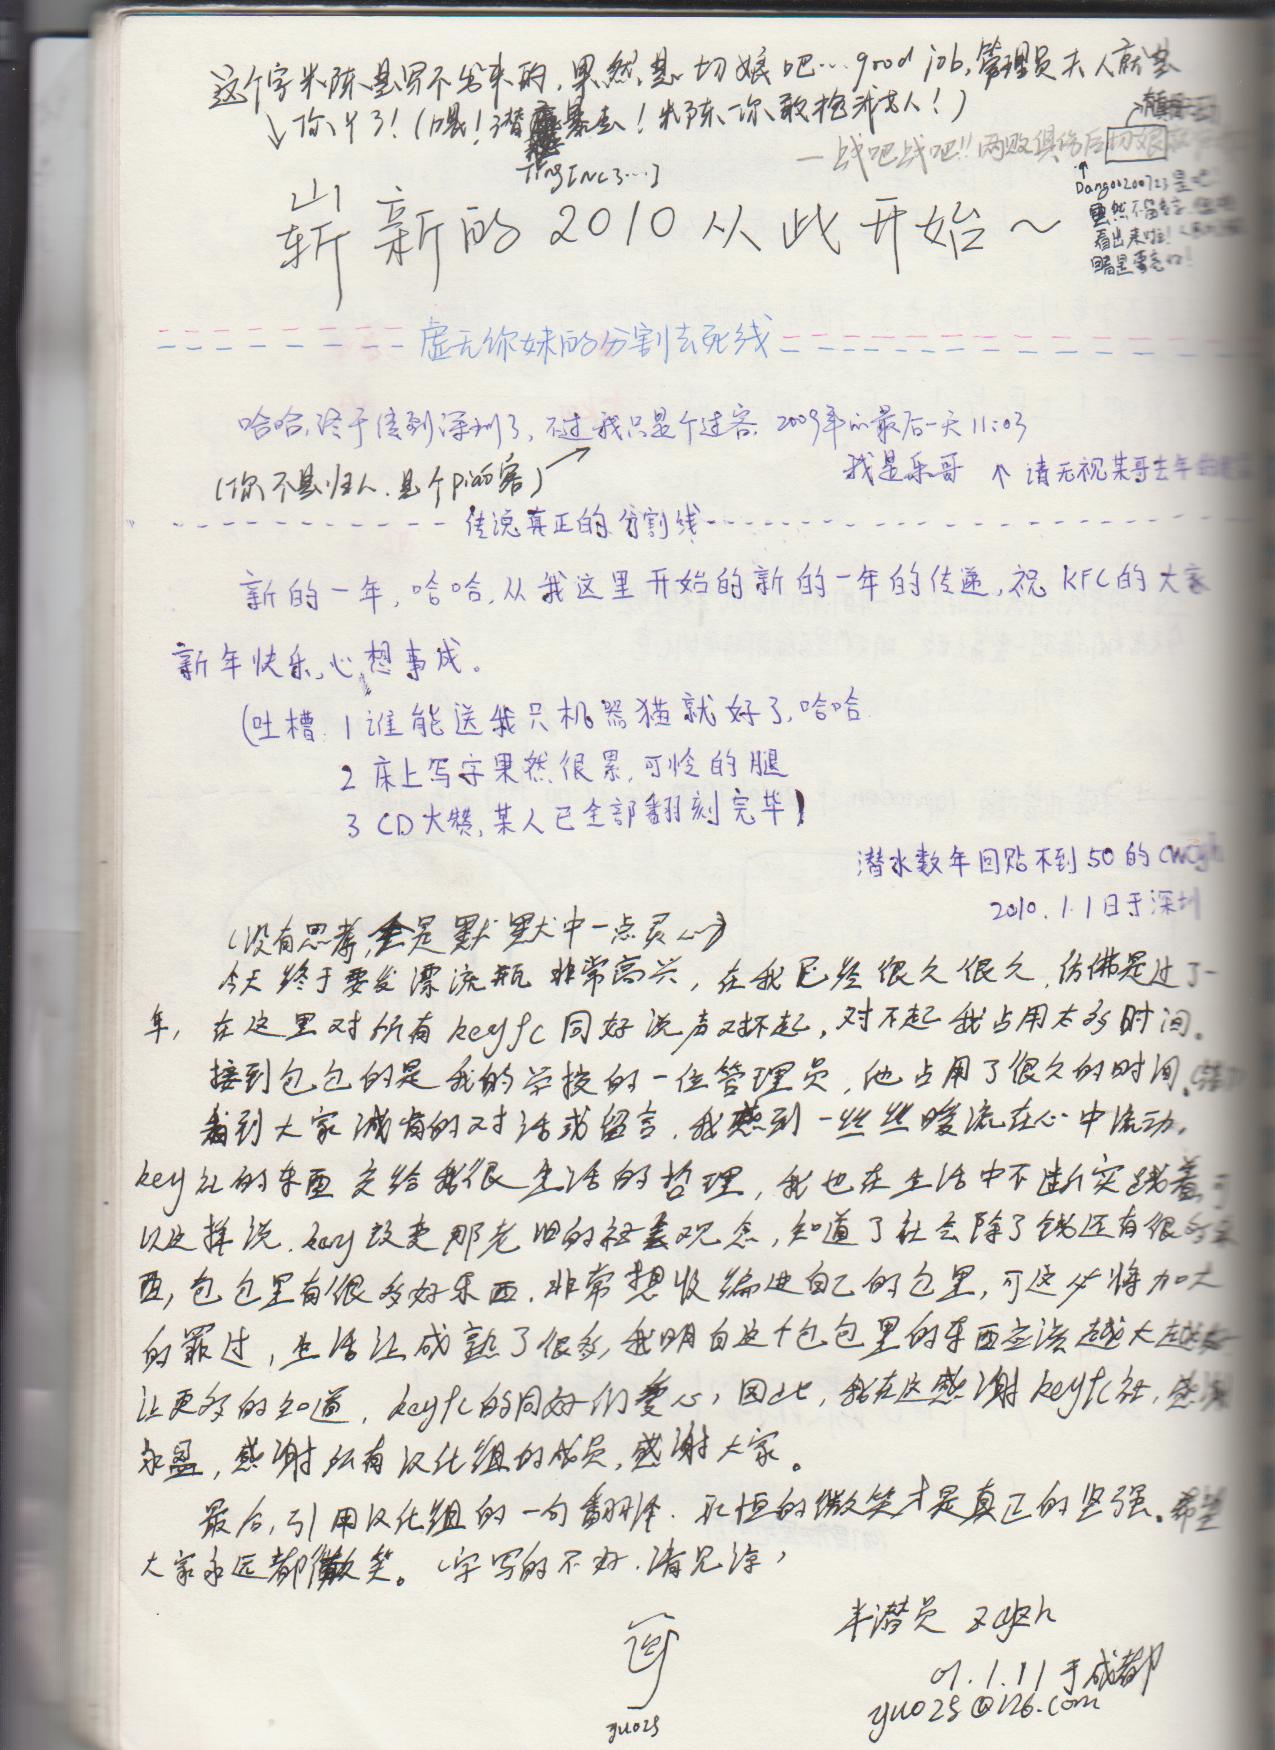 这个字米陈是写不出来的,果然是切娘吧…good job,管理员夫人就是
↓你丫了!(喂!潜 暴走!米陈你敢抢我女人!)
一战吧战吧!!两败俱伤后切娘
Ting[NC3…]
Dango200723是吧!
虽然不留言
看出来啦!
暗是要 !
崭新的2010从此开始~
虚无你妹的分割去死线
哈哈,终于传到深圳了,不过我只是个过客. 2009年的最后一天 11:03
(你不是归人,是个piao客)
我是乐哥 ↑ 请无视某哥去年的
传说真正的分割线
新的一年,哈哈,从我这里开始的新的一年的传递,祝KFC的大家
新年快乐,心想事成。
(吐槽: 1 谁能送我只机器猫就好了,哈哈
2 床上写字果然很累,可怜的腿
3 CD大赞,某人已全部翻刻完毕)
潜水数年回贴不到50的
2010.1.1日于深圳
(没有思考,全是默默中一点灵心)
今天终于要发漂流瓶 非常高兴,在我已经很久很久,仿佛是过了一
年,在这里对所有keyfc同好说声对不起,对不起我占用太多时间.
接到包包的是我的学校的一位管理员,他占用了很久的时间.
看到大家满满的对话或留言,我感到一丝丝暖流在心中流动.
key社的东西交给我很生活的哲理,我也在生活中不断实践着,可
以这样说.key改变那老旧的社会观念,知道了社会除了钱还有很多东
西,包包里有很多好东西.非常想收编进自己的包里,可这必将加大
的罪过,生活让成熟了很多,我明白这个包包里的东西应该越大越好
让更多的知道,keyfc的同好们爱心,因此,我在这感谢keyfc社,感谢
永盈,感谢所有汉化组的成员,感谢大家。
最后,引用汉化组的一句翻译.永恒的微笑才是真正的坚强。希望
大家永远都微笑。(字写的不好.请见谅)
半潜员 zcyzh
01.1.11于成都
yuo2s@126.com
yuo2s